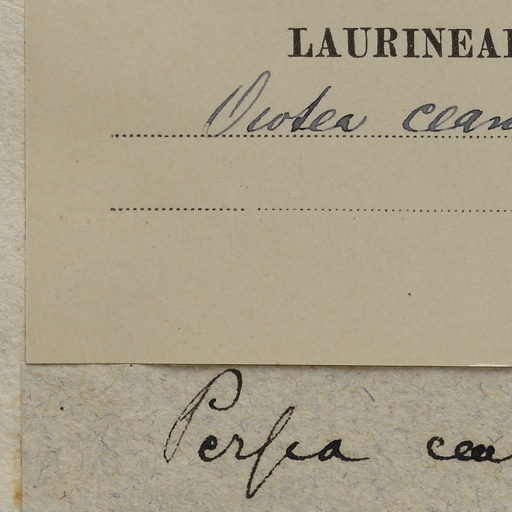 LAURINEA
Ocotea cean
Persea cea